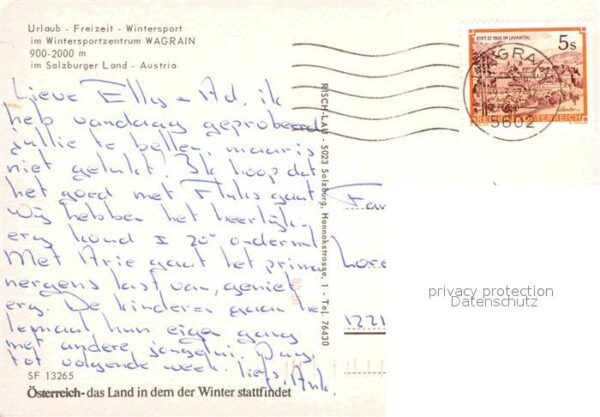 Urlaub - Freizeit - Wintersport
im Wintersportzentrum WAGRAIN
900-2000 m
im Salzburger Land - Austria
Lieve Ellys + Ad, ik
heb vandaag geprobeerd
jullie te bellen, maar is
niet gelukt! Ik hoop dat
het goed met Fluks gaat
Wij hebben het heerlijk
erg koud ± 20° onder nul
Met Arie gaat het prima
nergens last van, geniet
erg. De kinderen gaan he-
lemaal hun eigen gang
met andere jongelui. Dag,
tot volgende week. liefs, Ank
SF 13265
Österreich-das Land in dem der Winter stattfindet
RISCH-LAU - 5023 Salzburg, Hannakstrasse, 1 - Tel. 76430
STIFT ST. PAUL IM LAVANTTAL
5s
REPUBLIK ÖSTERREICH
WAGRAIN
5602
Fam
Lore
1221
privacy protection
Datenschutz